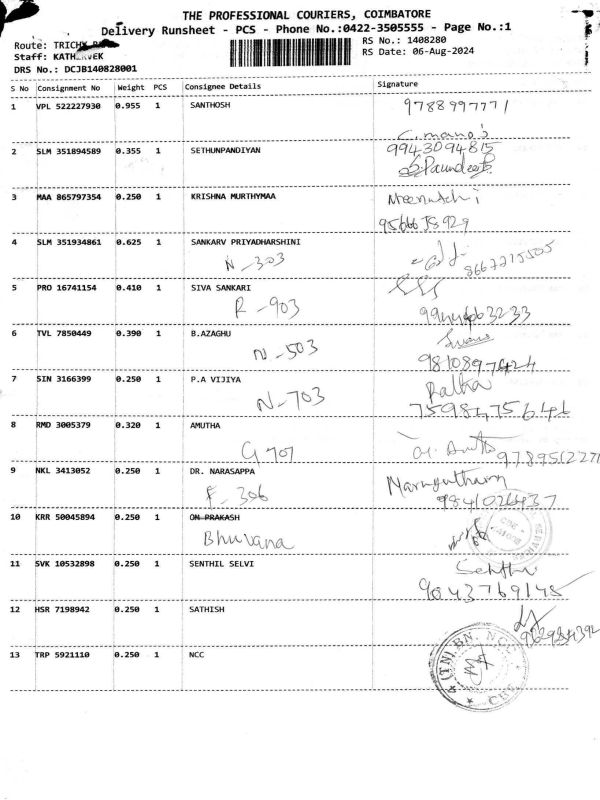 THE PROFESSIONAL COURIERS, COIMBATORE
Delivery Runsheet - PCS - Phone No.:0422-3505555 - Page No.:1
Route: TRICHY
RS No.: 1408280
Staff: KATH VEK
RS Date: 06-Aug-2024
DRS No.: DCJB140828001
S No Consignment No Weight PCS Consignee Details Signature
1 VPL 522227930 0.955 1 SANTHOSH 9788997771
C. mano's
2 SLM 351894589 0.355 1 SETHUNPANDIYAN 9943094815
3 MAA 865797354 0.250 1 KRISHNA MURTHYMAA Meenatchi
4 SLM 351934861 0.625 1 SANKARV PRIYADHARSHINI
N-303 8667215505
5 PRO 16741154 0.410 1 SIVA SANKARI
R-903
6 TVL 7850449 0.390 1 B.AZAGHU
N-503
9810897424
7 SIN 3166399 0.250 1 P.A VIJIYA
N-703
8 RMD 3005379 0.320 1 AMUTHA
G 707
9 NKL 3413052 0.250 1 DR. NARASAPPA
F-306
9841026437
10 KRR 50045894 0.250 1 OM PRAKASH
Bhuvana
11 SVK 10532898 0.250 1 SENTHIL SELVI
9043769145
12 HSR 7198942 0.250 1 SATHISH
13 TRP 5921110 0.250 1 NCC
(TN) BN. NCC
CBE